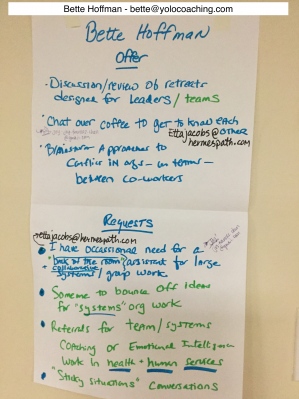 Bette Hoffman - bette@yolocoaching.com
Bette Hoffman
Offer
• Discussion/review of retreats
designed for leaders/teams
• Chat over coffee to get to know each
other
ettajacobs@
hermespath.com
• Brainstorm Approaches to
Conflict in orgs - in terms -
between co-workers
Requests
ettajacobs@hermespath.com
• I have occassional need for a
"back of the room" assistant for large
+ collaborative
systems/group work
• Someone to bounce off ideas
for "systems" org work
• Referrals for team/systems
coaching or Emotional Intelligence
work in health + human services
• "Sticky situations" conversations